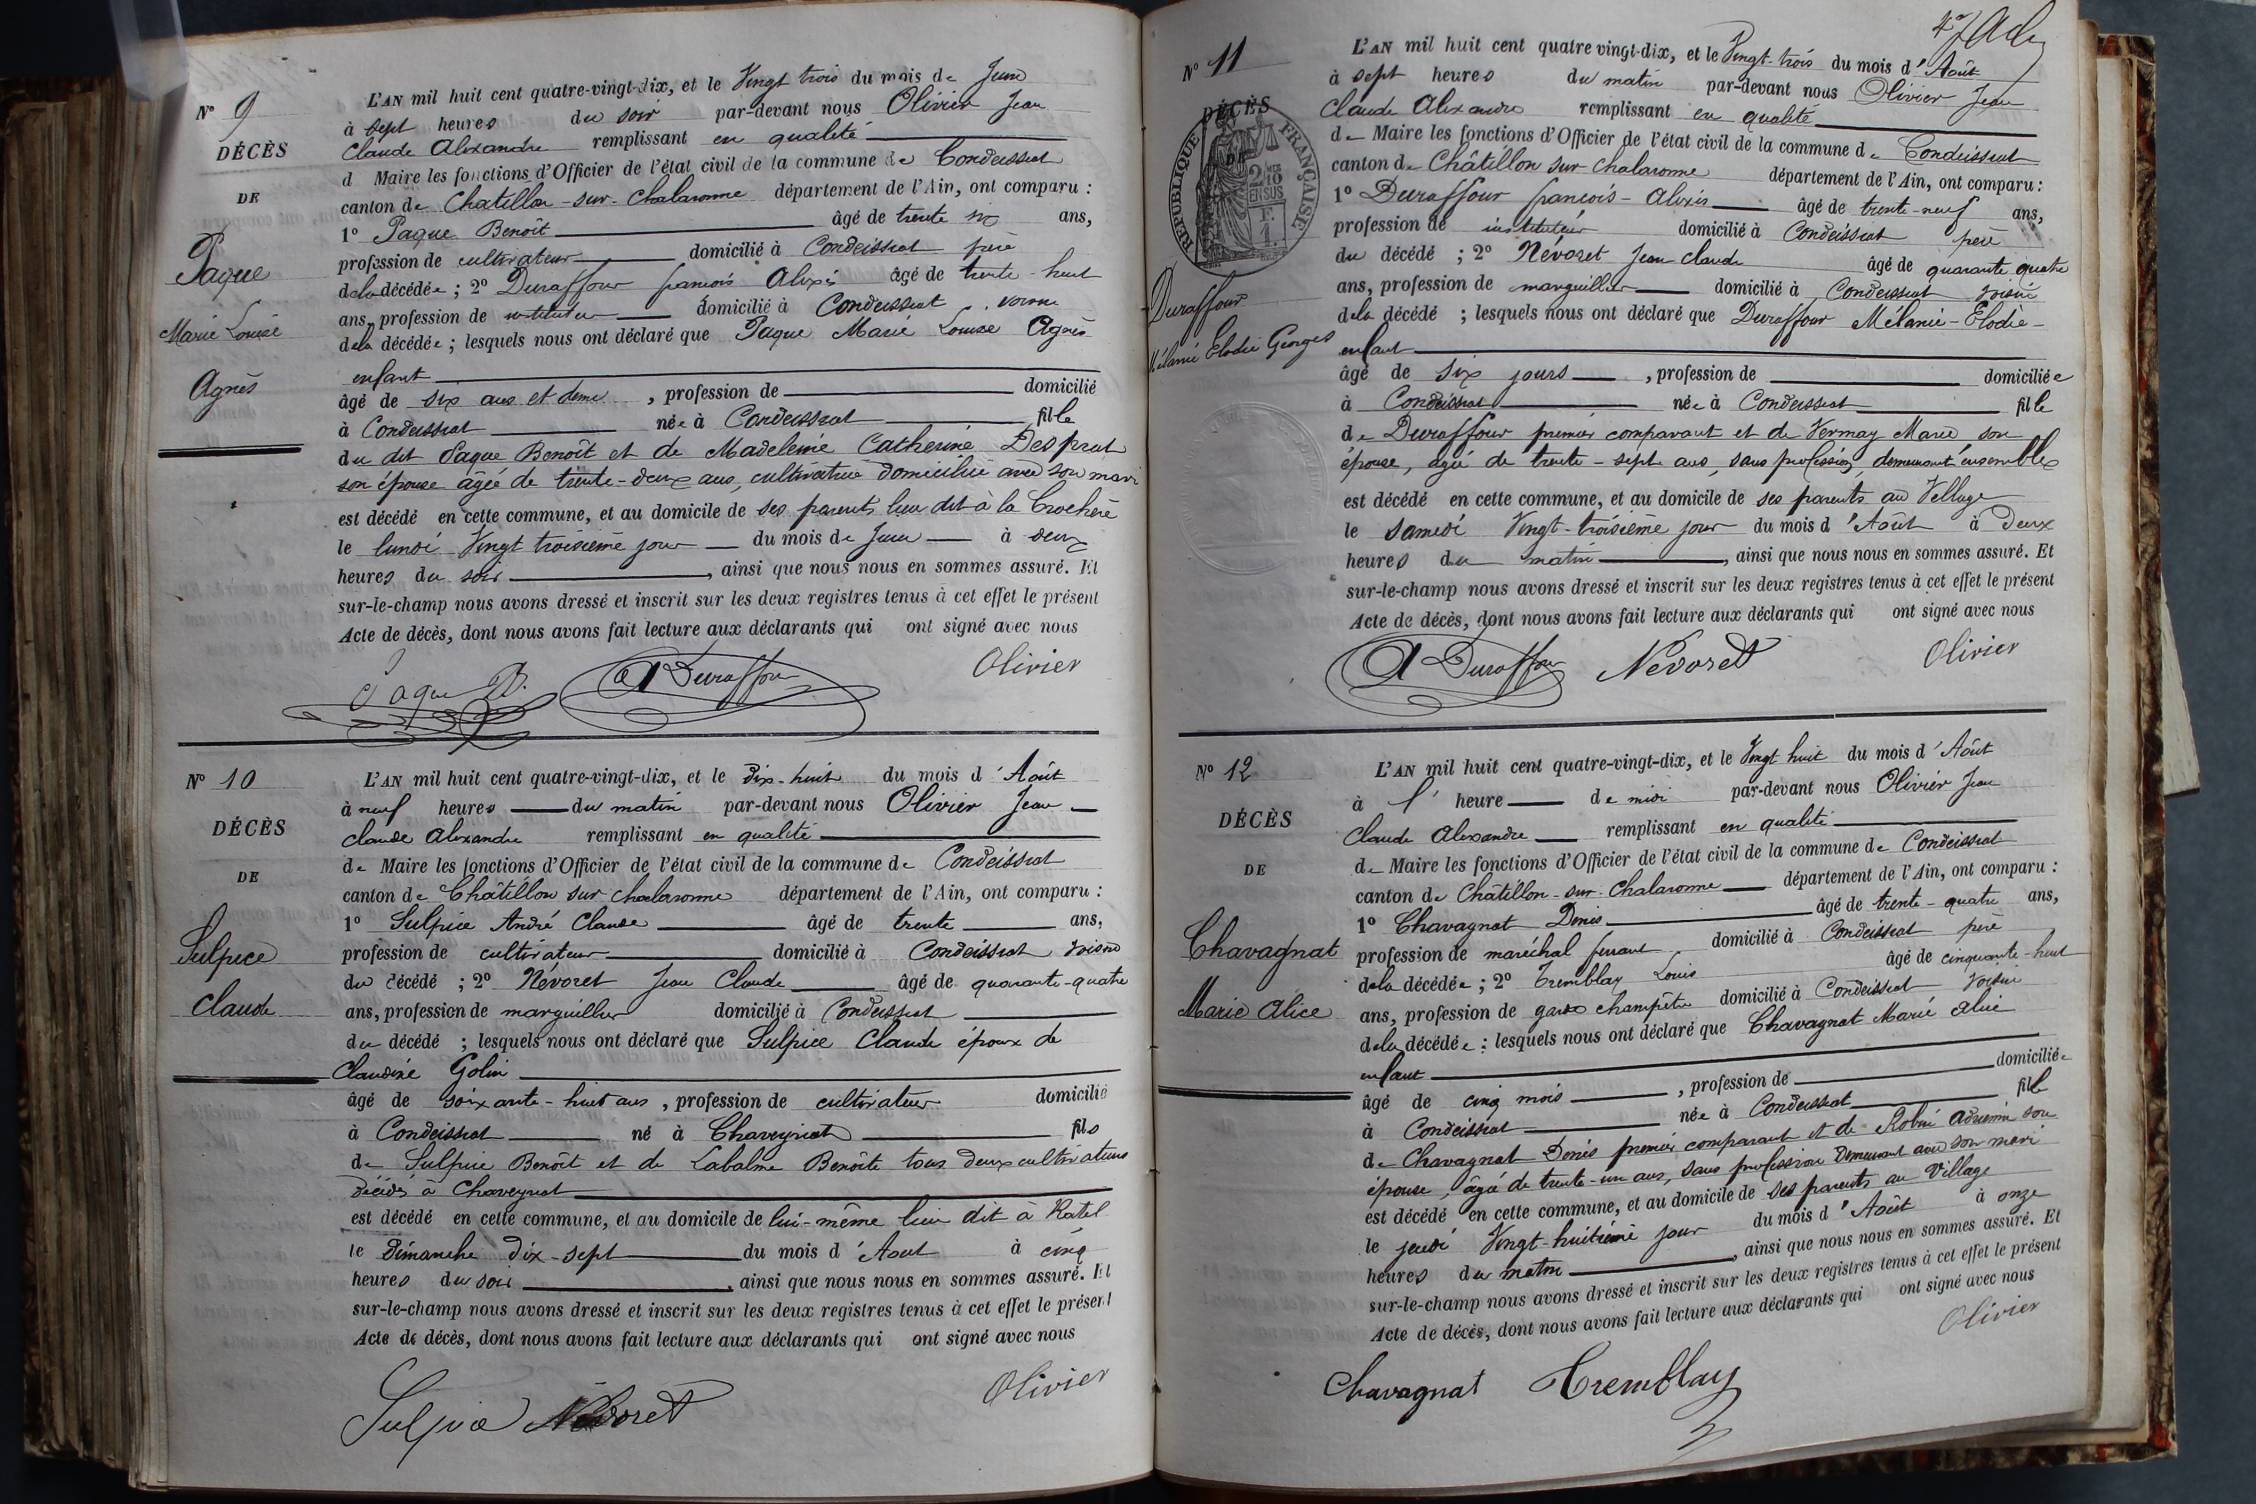 N° 9
DÉCÈS
DE
Paque
Marie Louise
Agnès
L'AN mil huit cent quatre-vingt-dix, et le Vingt trois du mois de Juin
à sept heures du soir par-devant nous Olivier Jean
Claude Alexandre remplissant en qualité
d Maire les fonctions d'Officier de l'état civil de la commune de Condeissiat
canton de Chatillon-sur-Chalaronne département de l'Ain, ont comparu :
1° Paque Benoît âgé de trente six ans,
profession de cultivateur domicilié à Condeissiat père
de la décédée ; 2° Duraffour françois Alexis âgé de trente-huit
ans, profession de instituteur domicilié à Condeissiat, voisin
de la décédée ; lesquels nous ont déclaré que Paque Marie Louise Agnès
enfant
âgé de six ans et demi, profession de domicilié
à Condeissiat née à Condeissiat fille
du dit Paque Benoît et de Madeleine Catherine Desprat
son épouse âgée de trente-deux ans, cultivatrice domiciliée avec son mari
est décédé en cette commune, et au domicile de ses parents lieu dit à la Crochère
le lundi Vingt troisième jour du mois de Juin à deux
heures du soir, ainsi que nous nous en sommes assuré. Et
sur-le-champ nous avons dressé et inscrit sur les deux registres tenus à cet effet le présent
Acte de décès, dont nous avons fait lecture aux déclarants qui ont signé avec nous
Paque B. A Duraffour Olivier
N° 10
DÉCÈS
DE
Sulpice
Claude
L'AN mil huit cent quatre-vingt-dix, et le dix-huit du mois d'Août
à neuf heures du matin par-devant nous Olivier Jean
Claude Alexandre remplissant en qualité
de Maire les fonctions d'Officier de l'état civil de la commune de Condeissiat
canton de Châtillon sur Chalaronne département de l'Ain, ont comparu :
1° Sulpice André Claude âgé de trente ans,
profession de cultivateur domicilié à Condeissiat voisin
du décédé ; 2° Névoret Jean Claude âgé de quarante-quatre
ans, profession de marguillier domicilié à Condeissiat
du décédé ; lesquels nous ont déclaré que Sulpice Claude époux de
Claudine Golin
âgé de soixante-huit ans, profession de cultivateur domicilié
à Condeissiat né à Chaveyriat fils
de Sulpice Benoît et de Labalme Benoîte tous deux cultivateurs
décédés à Chaveyriat
est décédé en cette commune, et au domicile de lui-même lieu dit à Ratel
le Dimanche dix-sept du mois d'Aout à cinq
heures du soir, ainsi que nous nous en sommes assuré. Et
sur-le-champ nous avons dressé et inscrit sur les deux registres tenus à cet effet le présent
Acte de décès, dont nous avons fait lecture aux déclarants qui ont signé avec nous
Sulpice Névoret Olivier
N° 11
DÉCÈS
DE
RÉPUBLIQUE FRANÇAISE
2/10MES EN SUS
Duraffour
Mélanie Elodie Georges
L'AN mil huit cent quatre vingt-dix, et le Vingt-trois du mois d'Août
à sept heures du matin par-devant nous Olivier Jean
Claude Alexandre remplissant en qualité
de Maire les fonctions d'Officier de l'état civil de la commune de Condeissiat
canton de Châtillon sur Chalaronne département de l'Ain, ont comparu :
1° Duraffour françois-Alexis âgé de trente-neuf ans,
profession de instituteur domicilié à Condeissiat père
du décédé ; 2° Névoret Jean Claude âgé de quarante quatre
ans, profession de marguillier domicilié à Condeissiat voisin
de la décédé ; lesquels nous ont déclaré que Duraffour Mélanie-Elodie-
enfant
âgé de six jours, profession de domiciliée
à Condeissiat née à Condeissiat fille
de Duraffour premier comparant et de Vermay Marie son
épouse, agée de trente-sept ans, sans profession, demeurant ensembles
est décédé en cette commune, et au domicile de ses parents au Village
le samedi Vingt-troisième jour du mois d'Août à Deux
heures du matin, ainsi que nous nous en sommes assuré. Et
sur-le-champ nous avons dressé et inscrit sur les deux registres tenus à cet effet le présent
Acte de décès, dont nous avons fait lecture aux déclarants qui ont signé avec nous
A Duraffour Névoret Olivier
N° 12
DÉCÈS
DE
Chavagnat
Marie Alice
L'AN mil huit cent quatre-vingt-dix, et le Vingt huit du mois d'Août
à l' heure de midi par-devant nous Olivier Jean
Claude Alexandre remplissant en qualité
de Maire les fonctions d'Officier de l'état civil de la commune de Condeissiat
canton de Châtillon-sur-Chalaronne département de l'Ain, ont comparu :
1° Chavagnat Denis âgé de trente-quatre ans,
profession de maréchal ferrant domicilié à Condeissiat père
de la décédée ; 2° Tremblay Louis âgé de cinquante-huit
ans, profession de garde champêtre domicilié à Condeissiat voisin
de la décédée ; lesquels nous ont déclaré que Chavagnat Marie Alice
enfant
âgé de cinq mois, profession de domiciliée
à Condeissiat née à Condeissiat fille
de Chavagnat Denis premier comparant et de Robin Adrienne son
épouse, âgée de trente-un ans, sans profession demeurant avec son mari
est décédé en cette commune, et au domicile de ses parents au Village
le jeudi Vingt-huitième jour du mois d'Août à onze
heures du matin, ainsi que nous nous en sommes assuré. Et
sur-le-champ nous avons dressé et inscrit sur les deux registres tenus à cet effet le présent
Acte de décès, dont nous avons fait lecture aux déclarants qui ont signé avec nous
Chavagnat Tremblay Olivier